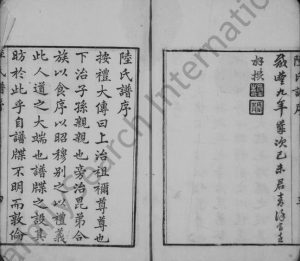 咸豐九年歲次己未
好撰
陸氏譜序
按禮大傳曰上治祖禰尊尊也
下治子孫親親也旁治昆弟合
族以食序以昭穆別之以禮義
此人道之大端也譜牒之設
昉於此乎自譜牒不明而敦倫
FamilySearch International